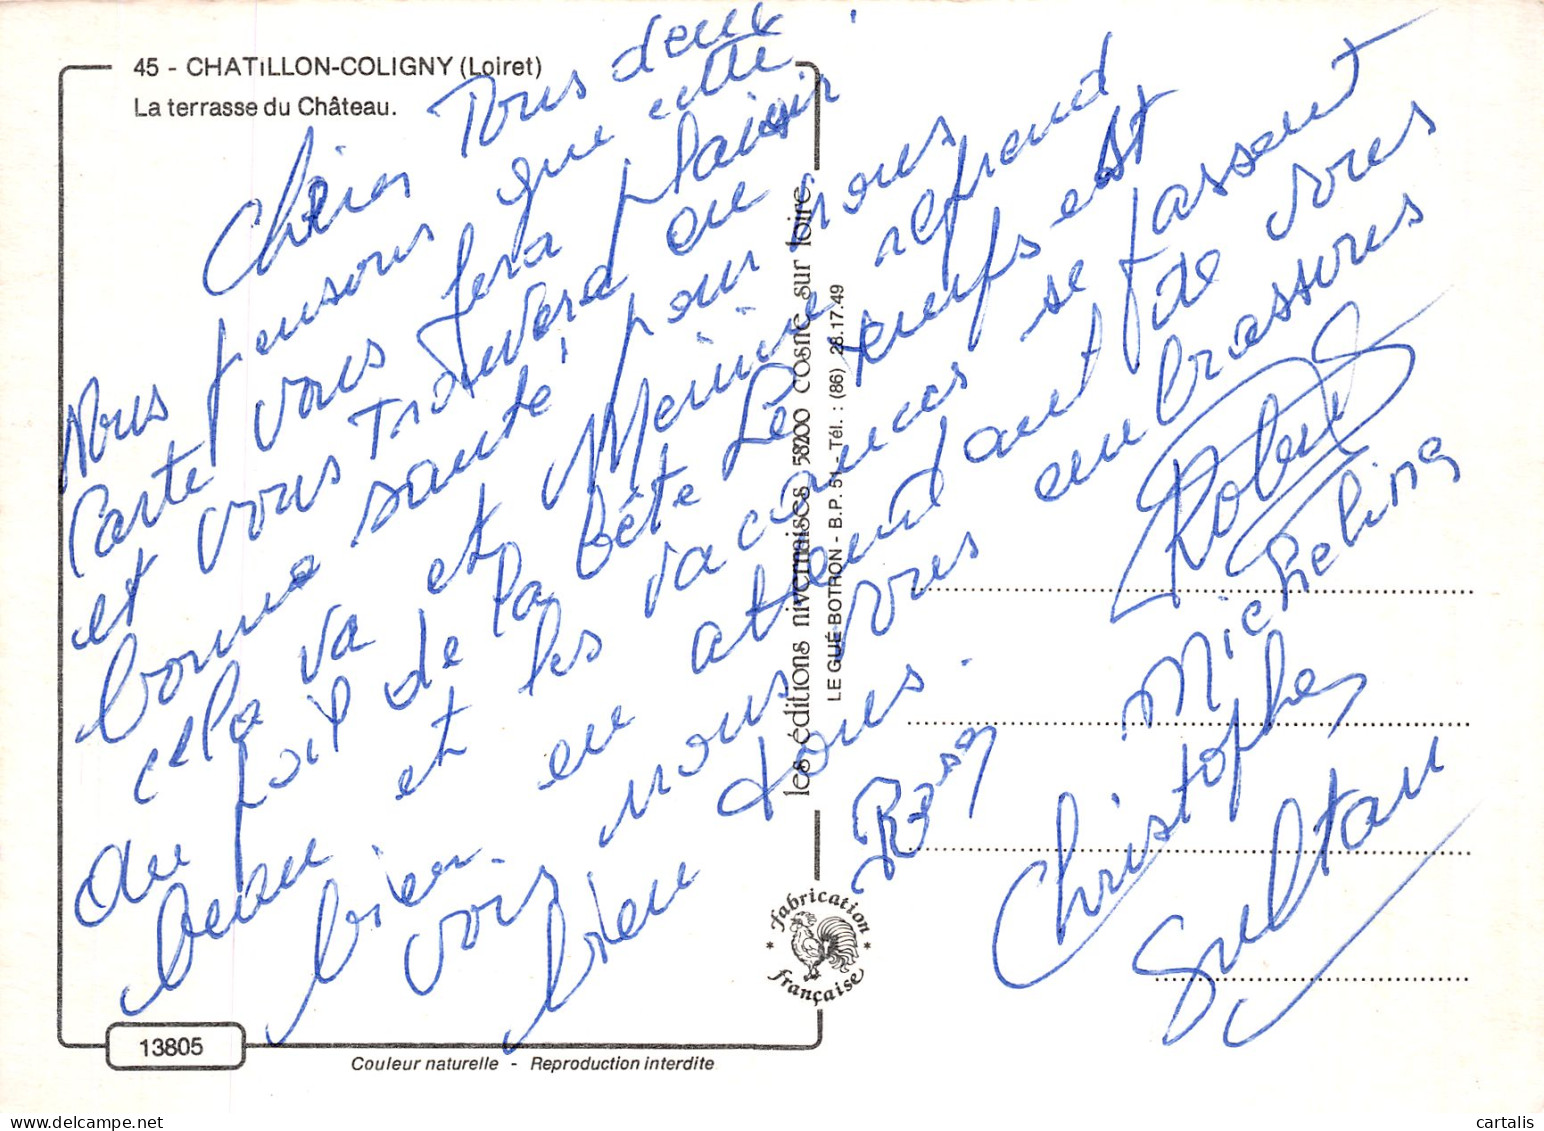 45 - CHATiLLON-COLIGNY (Loiret)
La terrasse du Château.
Chers Tous deux
Nous pensons que cette
Carte vous fera plaisir
et vous Trouvera en
bonne santé, pour nous
cela va et Mémine reprend
du poil de la bête Le temps est
beau et les vacances se passent
bien. en attendant de vous
voir nous vous embrassons
bien tous.
Robert
Micheling
Rosa
Christophes
Sultan
les éditions nivernaises 58200 cosne sur loire
LE GUÉ BOTRON - B.P. 51 - Tél. : (86) 28.17.49
* fabrication *
française
13805
Couleur naturelle - Reproduction interdite
cartalis